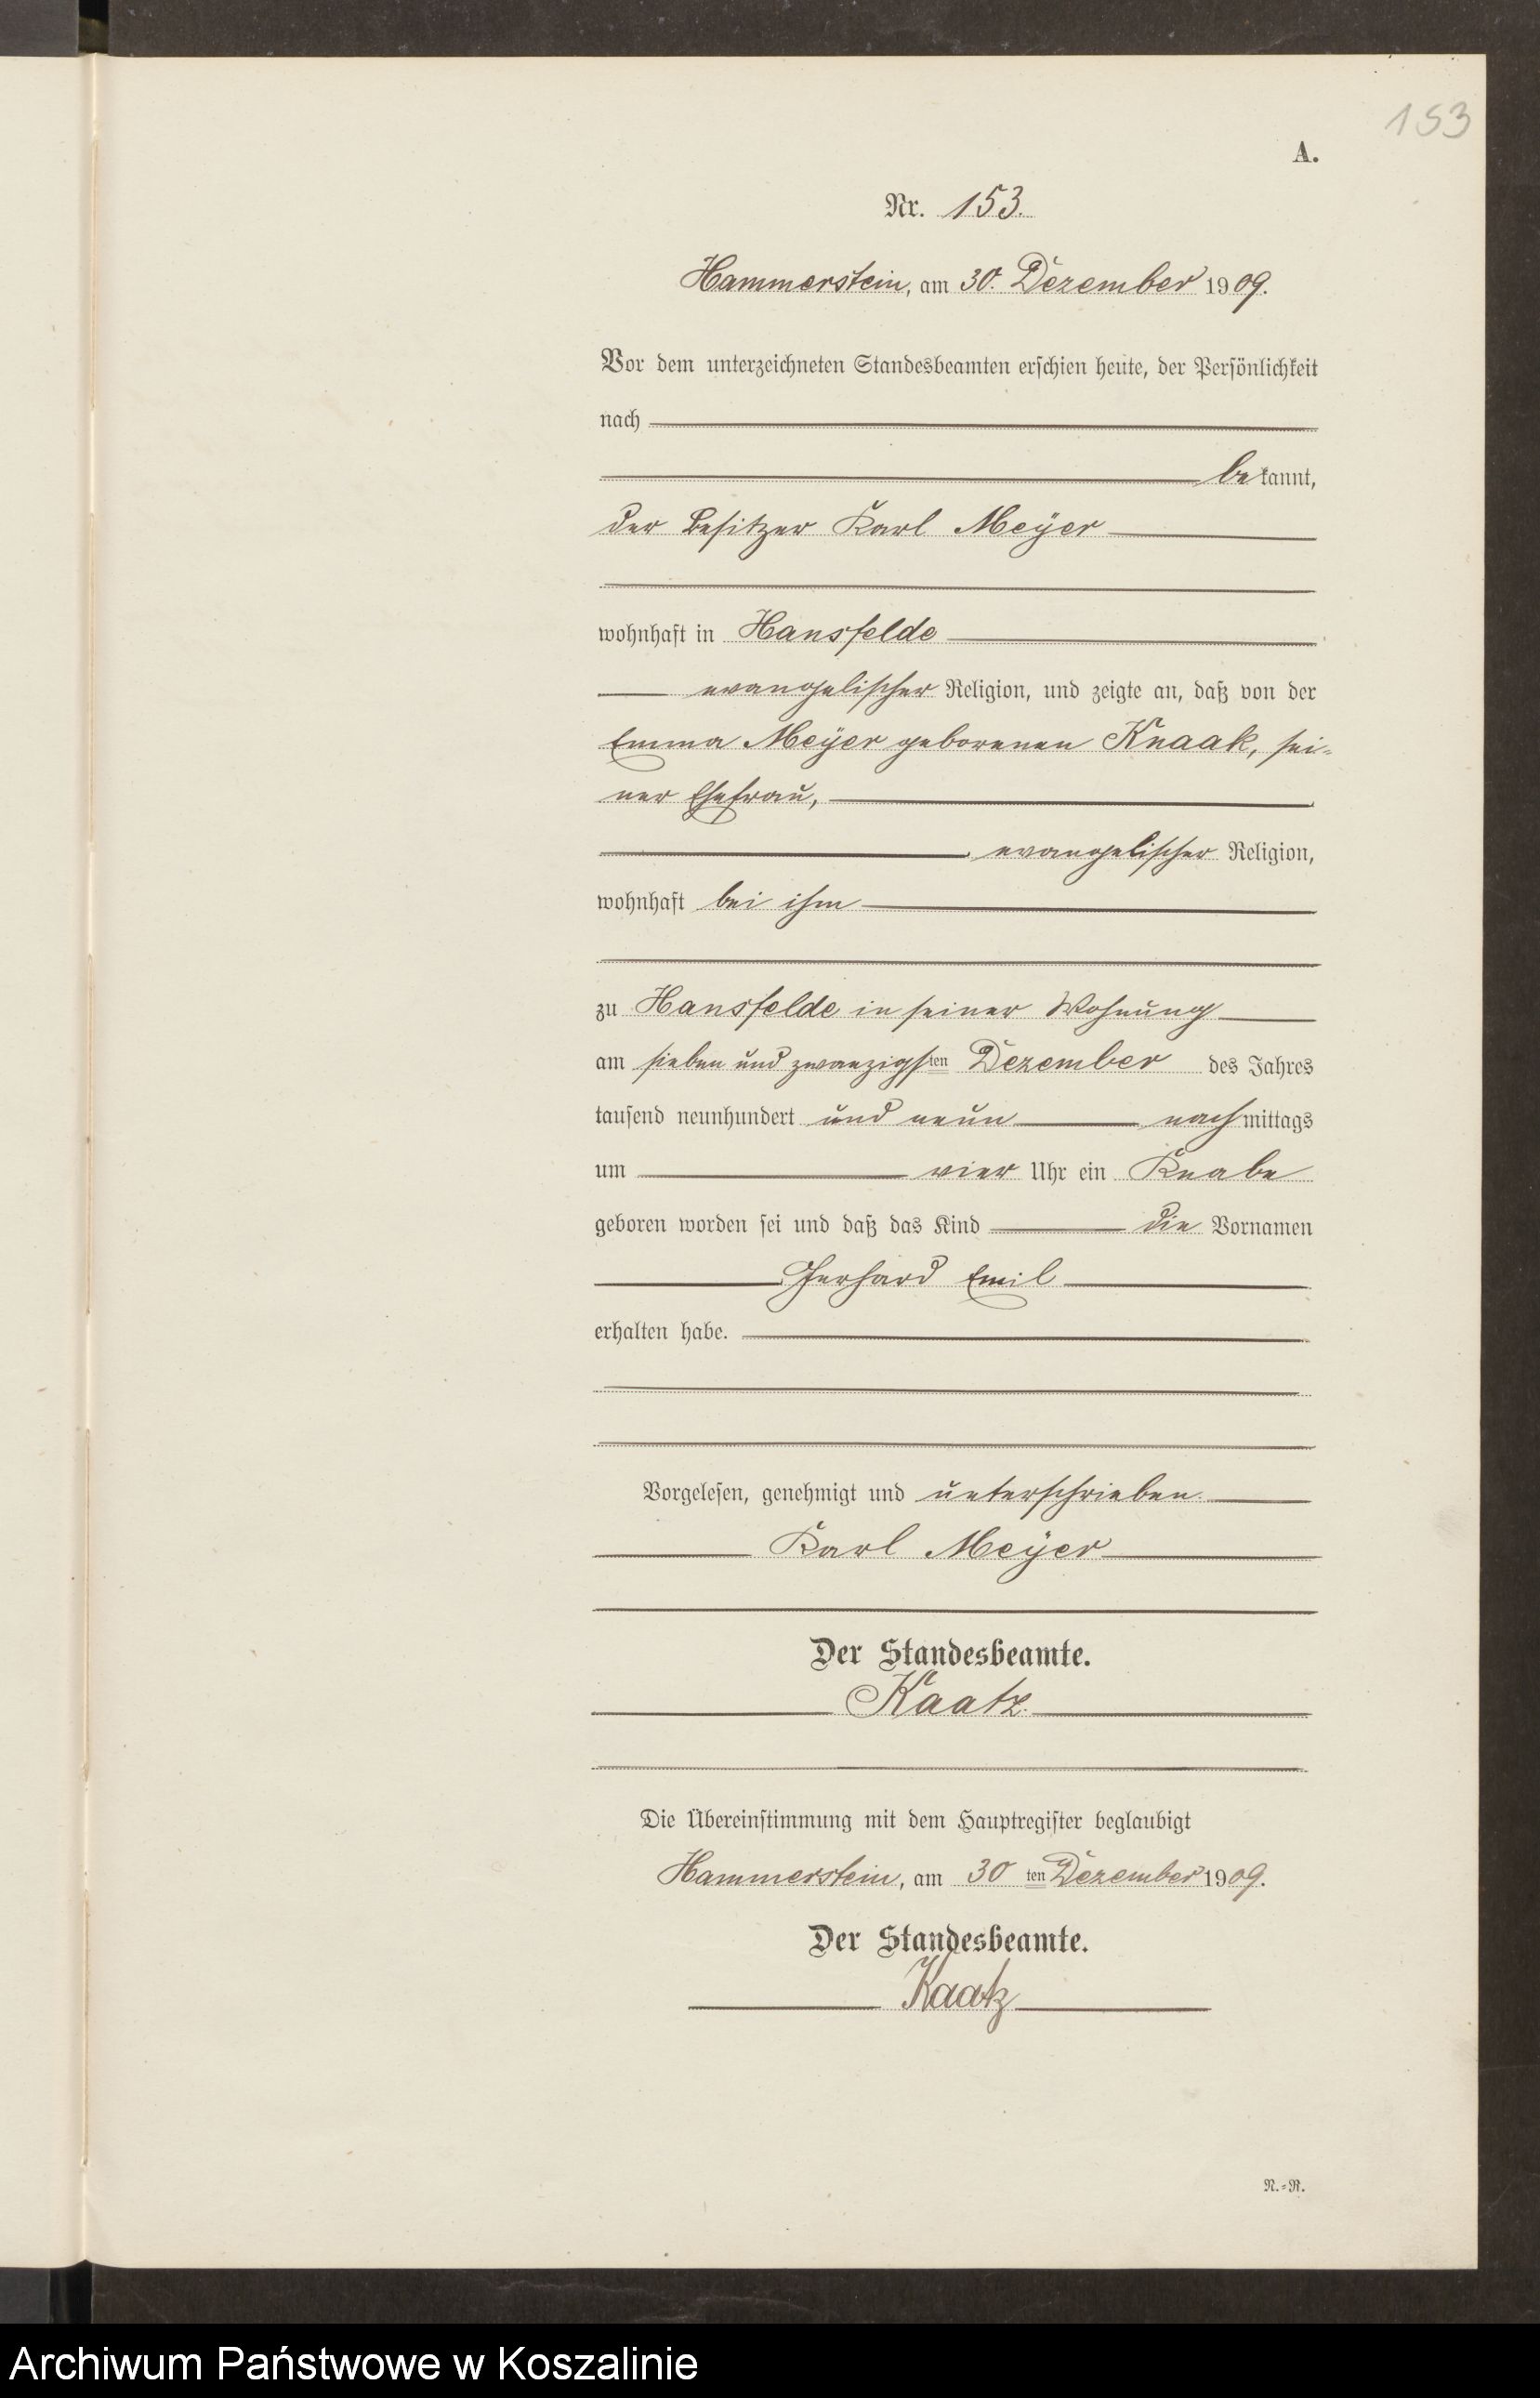 153
A.
Nr. 153.
Hammerstein, am 30. Dezember 1909.
Vor dem unterzeichneten Standesbeamten erschien heute, der Persönlichkeit
nach
bekannt,
der Besitzer Karl Meÿer
wohnhaft in Hansfelde
evangelischer Religion, und zeigte an, daß von der
Emma Meÿer geborenen Knaak, sei-
ner Ehefrau,
evangelischer Religion,
wohnhaft bei ihm
zu Hansfelde in seiner Wohnung
am sieben und zwanzigsten Dezember des Jahres
tausend neunhundert und neun nachmittags
um vier Uhr ein Knabe
geboren worden sei und daß das Kind die Vornamen
Gerhard Emil
erhalten habe.
Vorgelesen, genehmigt und unterschrieben.
Karl Meÿer
Der Standesbeamte.
Kaatz.
Die Übereinstimmung mit dem Hauptregister beglaubigt
Hammerstein, am 30ten Dezember 1909.
Der Standesbeamte.
Kaatz
N.-R.
Archiwum Państwowe w Koszalinie